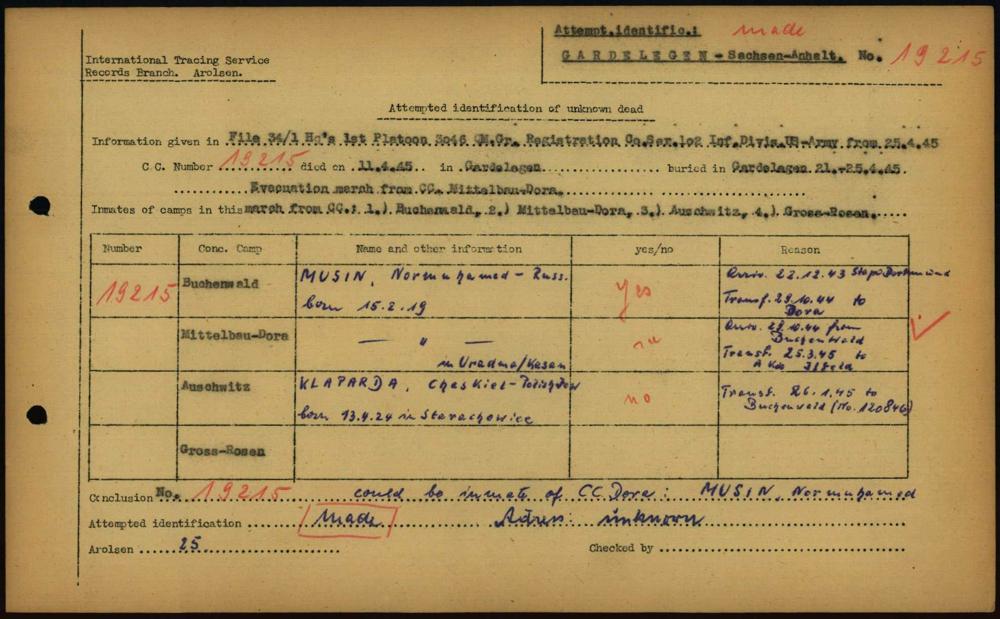 Attempt.identific.: made
GARDELEGEN - Sachsen-Anhalt. No. 19215
International Tracing Service
Records Branch. Arolsen.
Attempted identification of unknown dead
Information given in File 34/1 Hq's 1st Platoon 3046 QM.Gr. Registration Co.Ser.102 Inf.Divis.US-Army from 25.4.45
C.C. Number 19215 died on 11.4.45 in Gardelegen buried in Gardelegen 21.-25.4.45.
Evacuation march from CC. Mittelbau-Dora.
Inmates of camps in this march from CC.: 1.) Buchenwald, 2.) Mittelbau-Dora, 3.) Auschwitz, 4.) Gross-Rosen.
Number Conc. Camp Name and other information yes/no Reason
19215 Buchenwald MUSIN, Normuhamed - Russ. born 15.2.19 yes Arriv. 22.12.43 Stapo Dortmund
Transf. 29.10.44 to
Dora
Mittelbau-Dora — " — Arriv. 29.10.44 from
Buchenwald
Transf. 25.3.45 to
Auschwitz KLAPARDA, Chaskiel - Polish Jew
born 13.4.24 in Starachowice no Transf. 26.1.45 to
Buchenwald (No. 120846)
Gross-Rosen
Conclusion No. 19215 could be inmate of CC Dora: MUSIN, Normuhamed
Attempted identification made Adress: unknown
Arolsen 25 Checked by